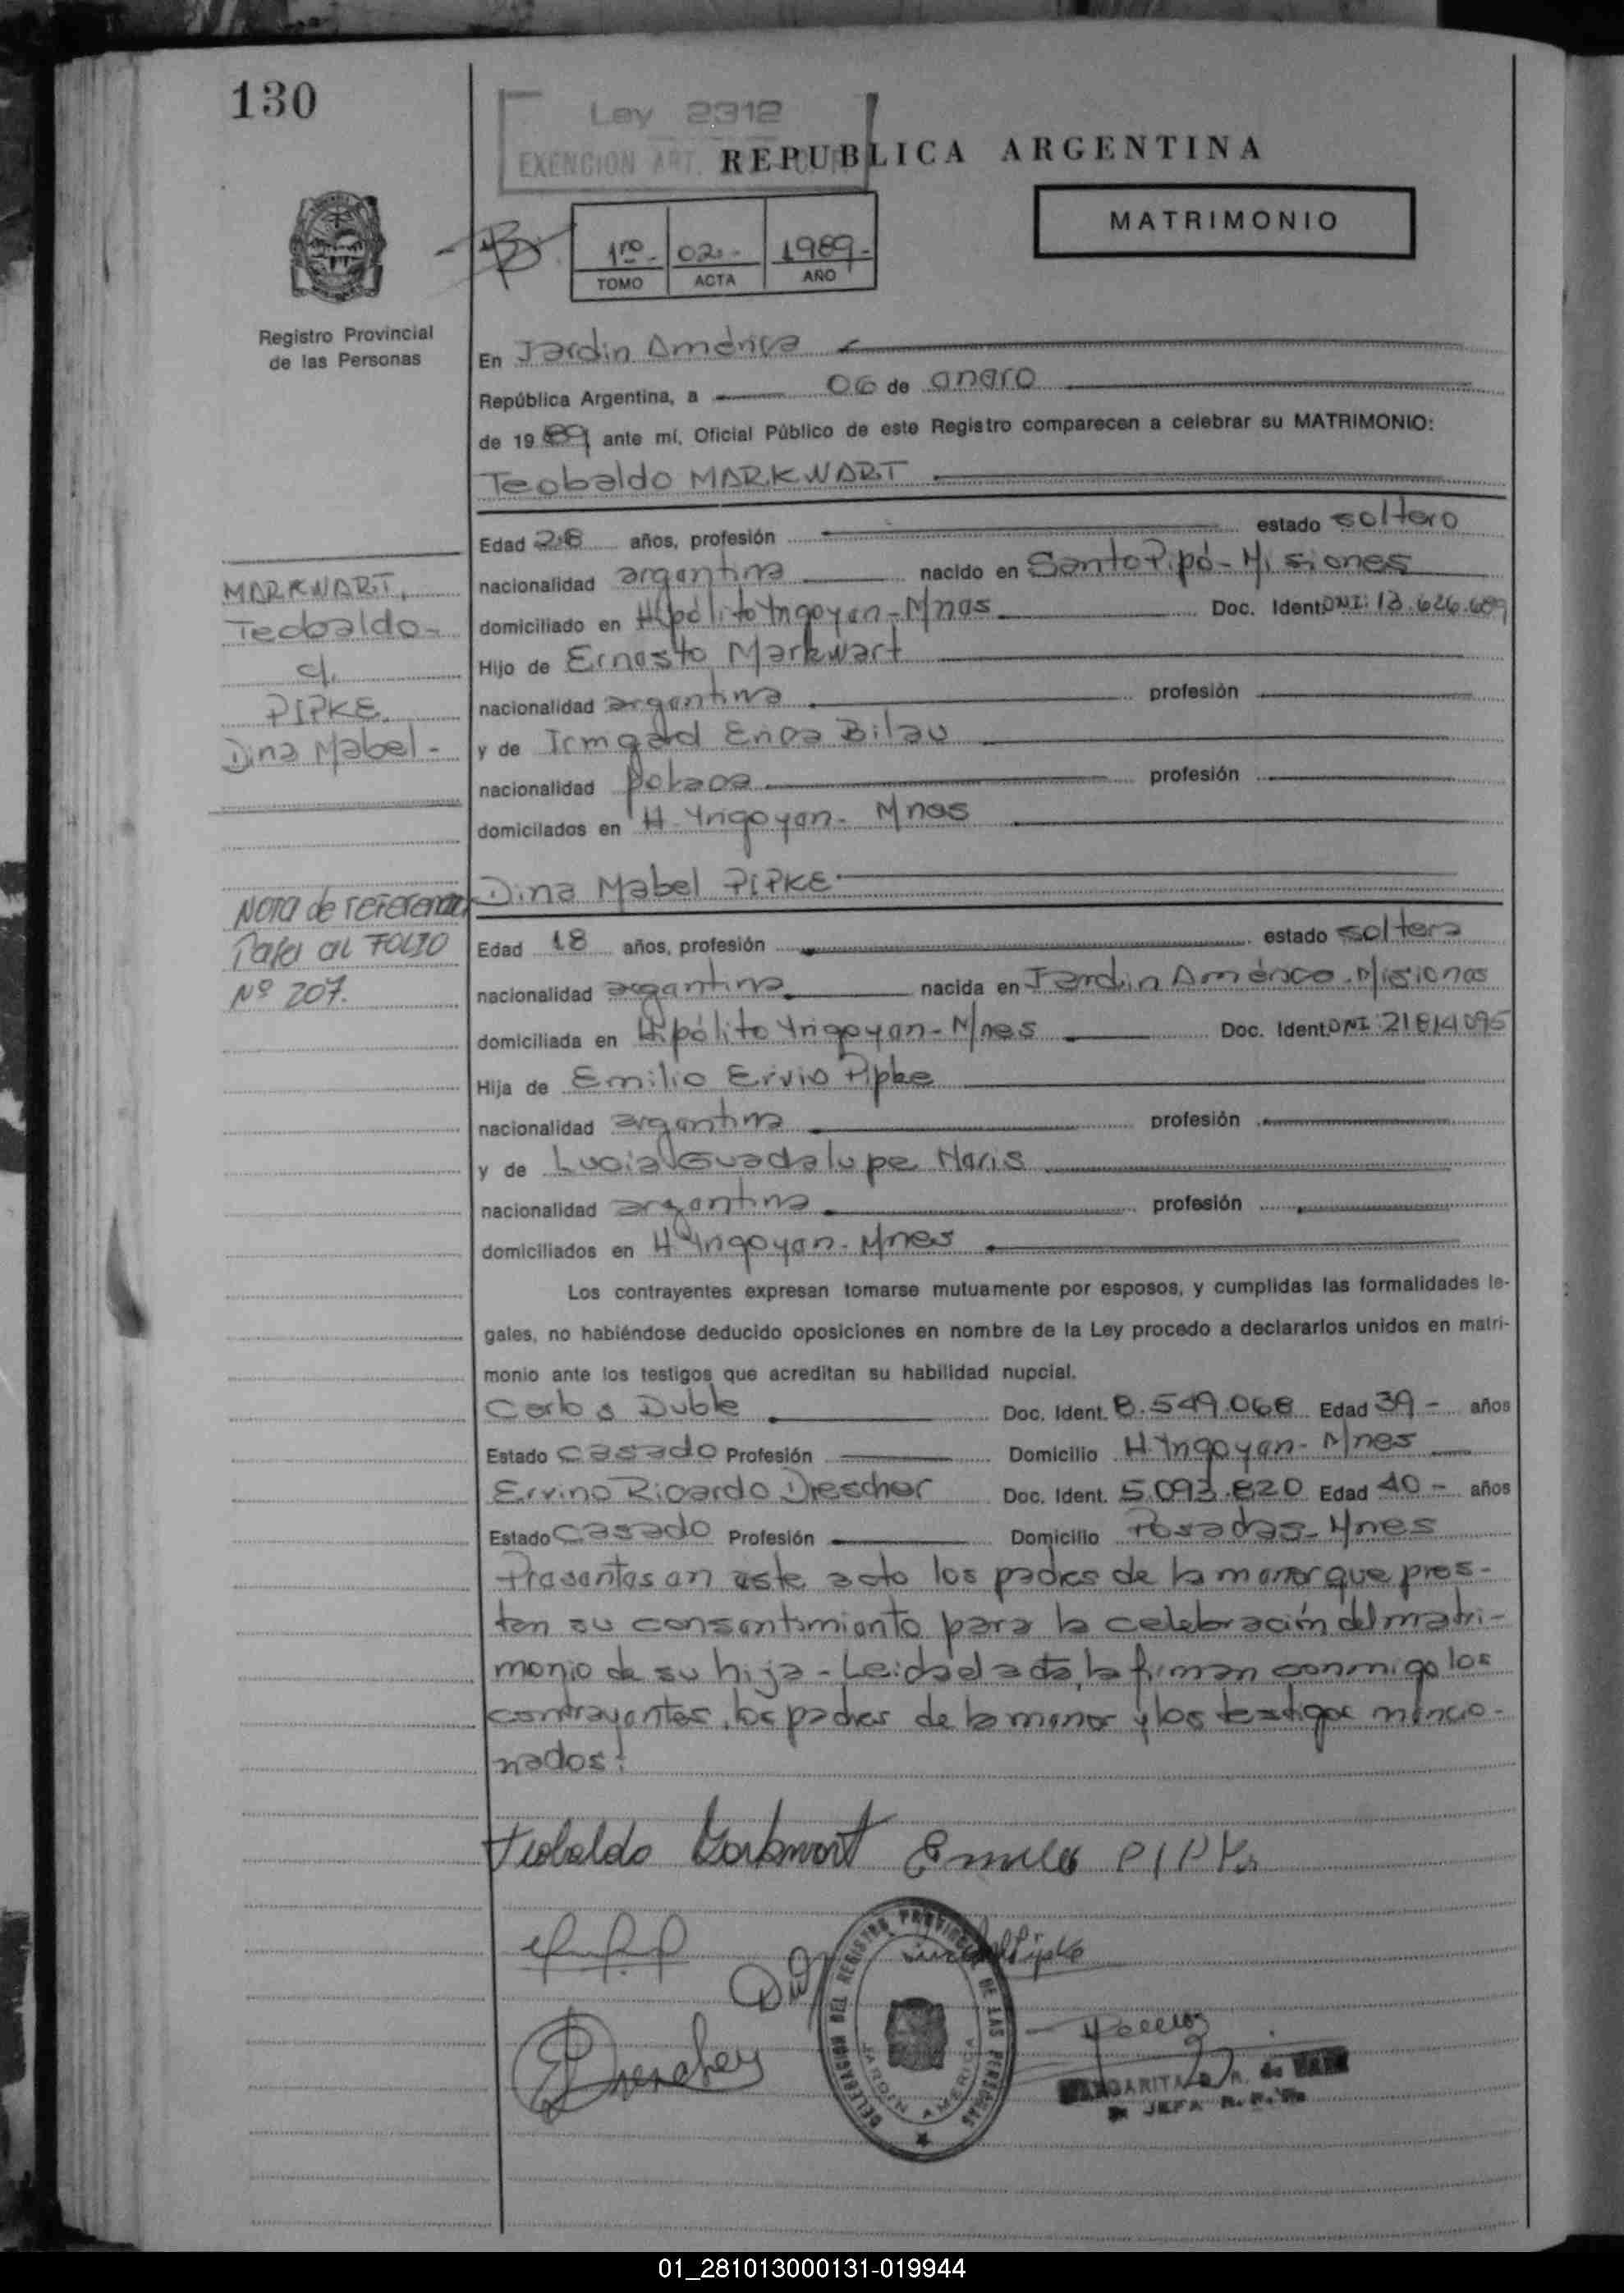 130
Ley 2312
EXENCION ART.
REPUBLICA ARGENTINA
MATRIMONIO
1ro.- 02.- 1989-
TOMO ACTA AÑO
Registro Provincial
de las Personas
En Jardin América
República Argentina, a 06 de enero
de 1989 ante mí, Oficial Público de este Registro comparecen a celebrar su MATRIMONIO:
Teobaldo MARKWART
Edad 28 años, profesión estado soltero
nacionalidad argentina nacido en Santo Pipó - Misiones
domiciliado en Hipólito Yrigoyen - Mnes Doc. Ident. DNI: 13.626.689
Hijo de Ernesto Markwart
nacionalidad argentina profesión
y de Irmgard Erica Bilau
nacionalidad polaca profesión
domicilados en H. Yrigoyen - Mnes
MARKWART,
Teobaldo-
c/.
PIPKE.
Dina Mabel-
Dina Mabel PIPKE
Edad 18 años, profesión estado soltera
nacionalidad argentina nacida en Jardin América - Misiones
domiciliada en Hipólito Yrigoyen - Mnes Doc. Ident. DNI: 21.814.095
Hija de Emilio Ervio Pipke
nacionalidad argentina profesión
y de Lucia Guadalupe Haris
nacionalidad argentina profesión
domiciliados en H. Yrigoyen - Mnes
Nota de referencia
Pasa al FOLIO
Nº 207.
Los contrayentes expresan tomarse mutuamente por esposos, y cumplidas las formalidades le-
gales, no habiéndose deducido oposiciones en nombre de la Ley procedo a declararlos unidos en matri-
monio ante los testigos que acreditan su habilidad nupcial.
Carlos Duble Doc. Ident. 8.549.068 Edad 39- años
Estado casado Profesión Domicilio H. Yrigoyen - Mnes
Ervino Ricardo Drescher Doc. Ident. 5.093.820 Edad 40- años
Estado casado Profesión Domicilio Posadas - Mnes
Presentes en este acto los padres de la menor que pres-
tan su consentimiento para la celebración del matri-
monio de su hija - Leida el acta, la firman conmigo los
contrayentes, los padres de la menor y los testigos mencio-
nados:
Teobaldo Markwart Emilio PIPKe
Pipke
Drescher
DELEGACION DEL REGISTRO PROVINCIAL DE LAS PERSONAS
JARDIN AMERICA
MARGARITA
JEFA R. P.
01_281013000131-019944